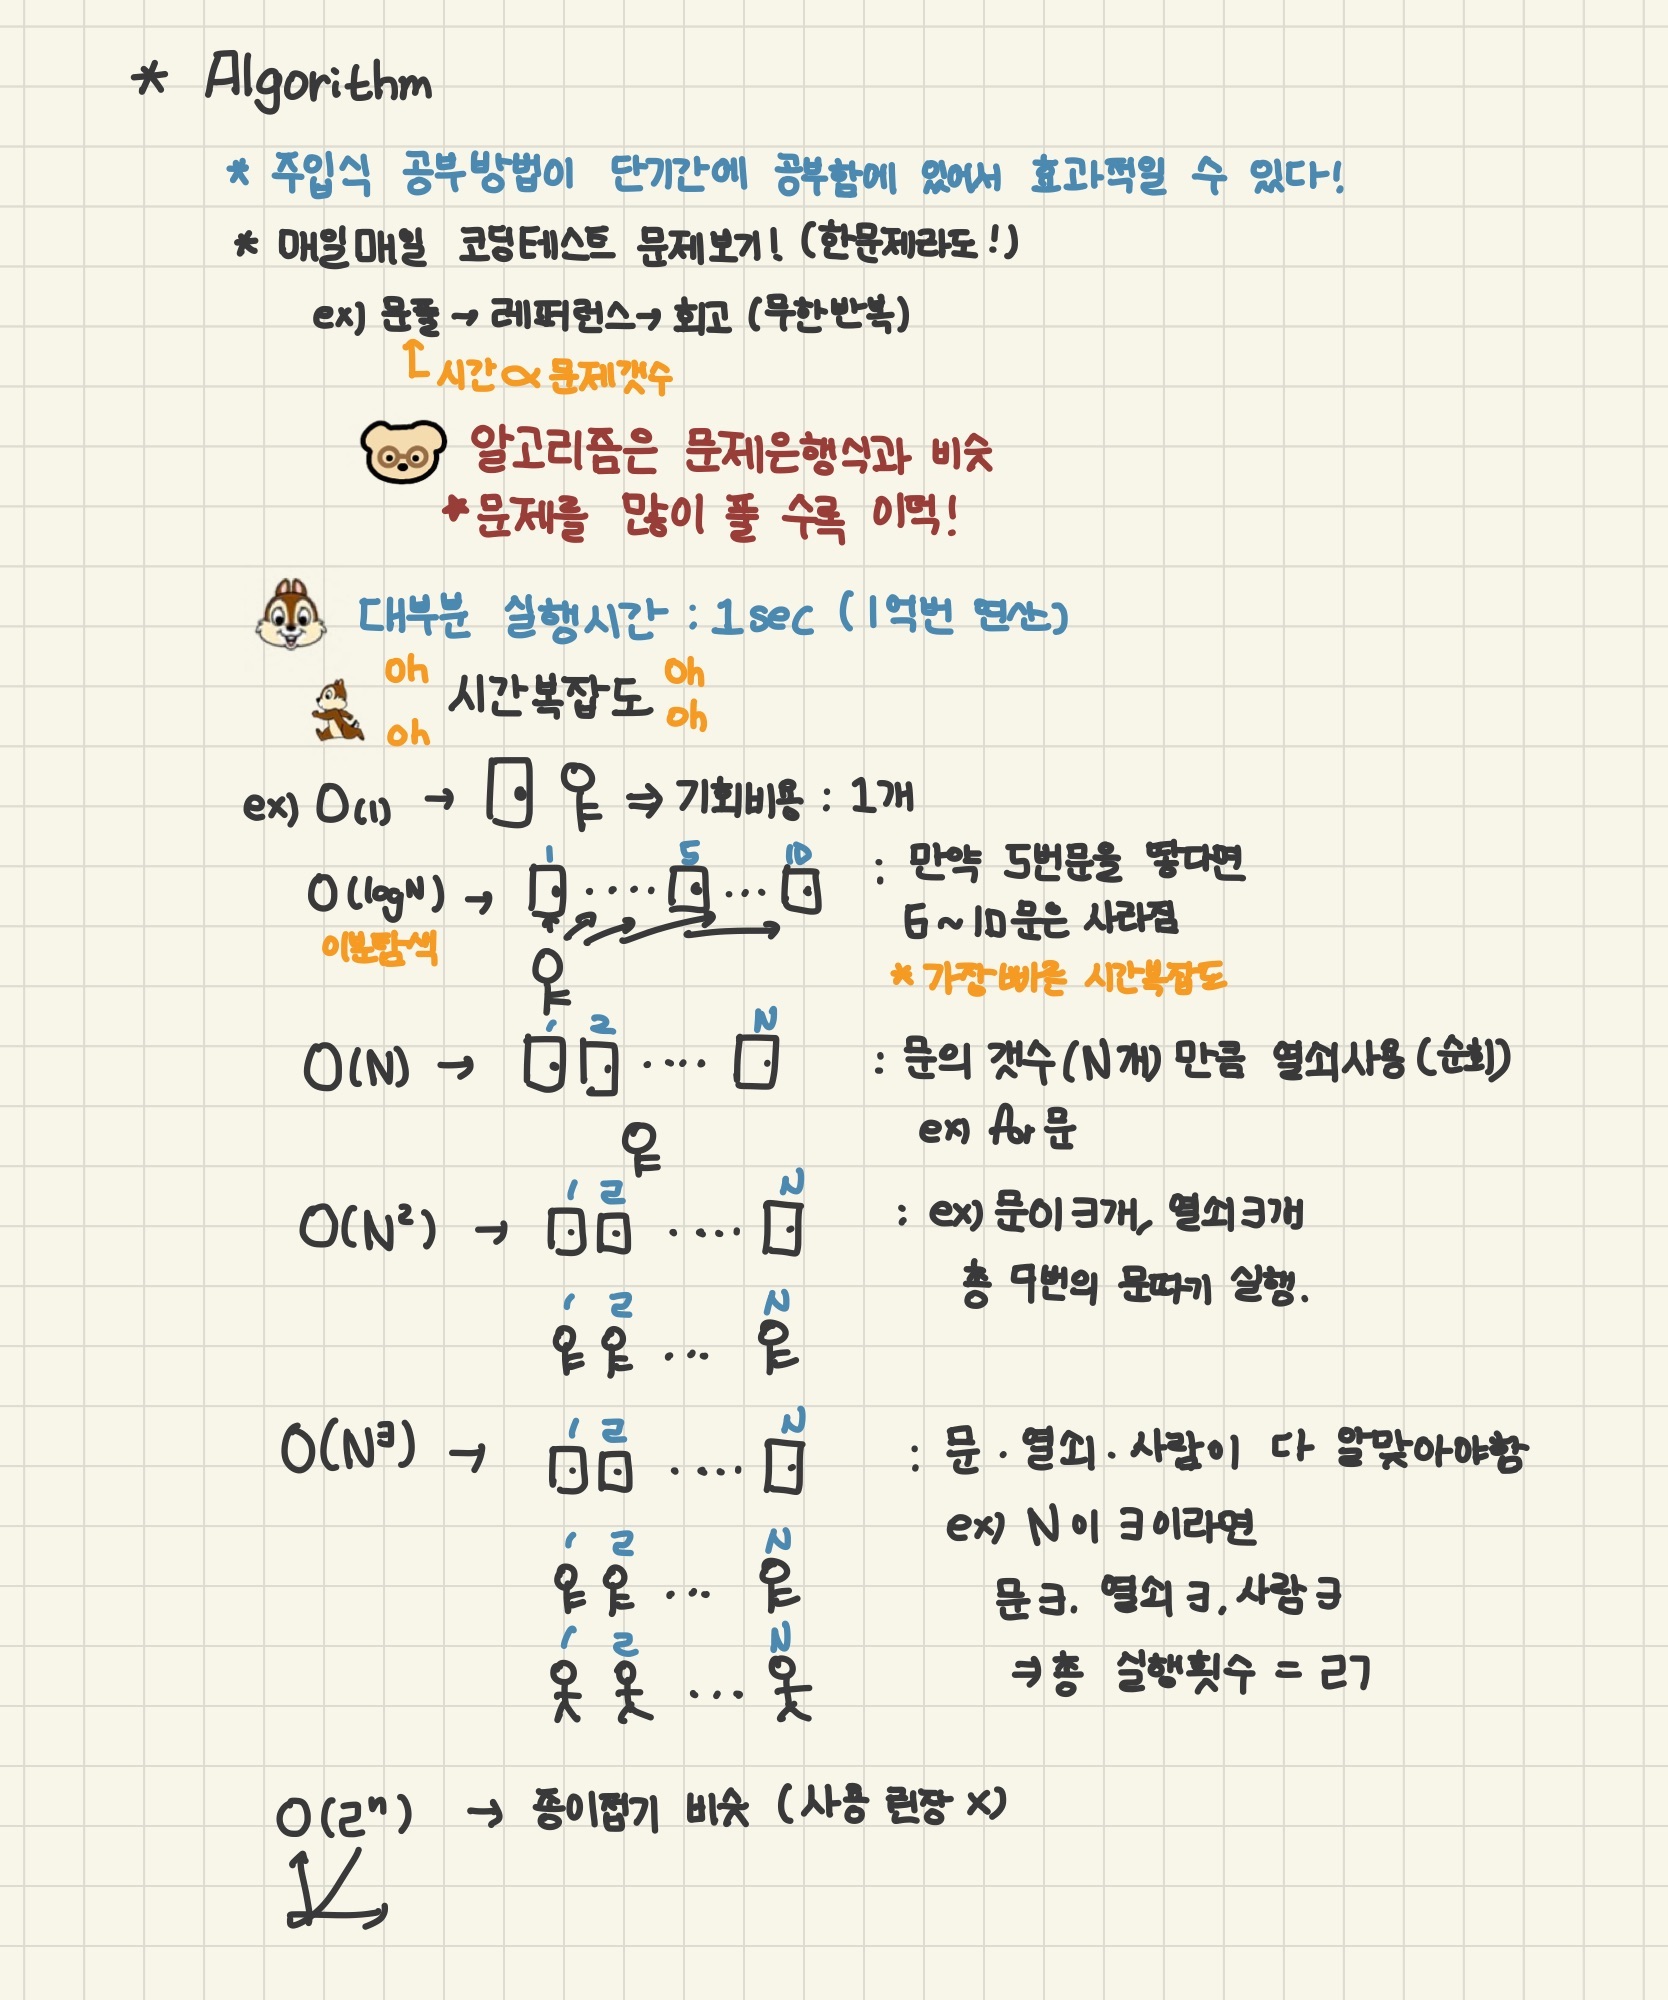 * Algorithm
* 주입식 공부방법이 단기간에 공부함에 있어서 효과적일 수 있다!
* 매일매일 코딩테스트 문제보기! (한문제라도!)
ex) 문풀 → 레퍼런스 → 회고 (무한반복)
시간 ∝ 문제갯수
알고리즘은 문제은행식과 비슷
* 문제를 많이 풀 수록 이먹!
대부분 실행시간 : 1sec (1억번 연산)
oh 시간복잡도 oh
oh oh
ex) O(1) → ⇒ 기회비용 : 1개
1 5 10
O(logN) → .... ... : 만약 5번문을 땋다면
6~10문은 사라짐
이분탐색
* 가장 빠른 시간복잡도
1 2 N
O(N) → .... : 문의 갯수(N개) 만큼 열쇠사용 (순회)
ex) for문
1 2 N
O(N²) → .... : ex) 문이 3개, 열쇠 3개
총 9번의 문따기 실행.
1 2 N
...
1 2 N
O(N³) → .... : 문 · 열쇠 · 사람이 다 알맞아야함
ex) N이 3이라면
1 2 N
...
문 3. 열쇠 3, 사람 3
1 2 N
...
⇒ 총 실행횟수 = 27
O(2ⁿ) → 종이접기 비슷 (사용 권장 X)